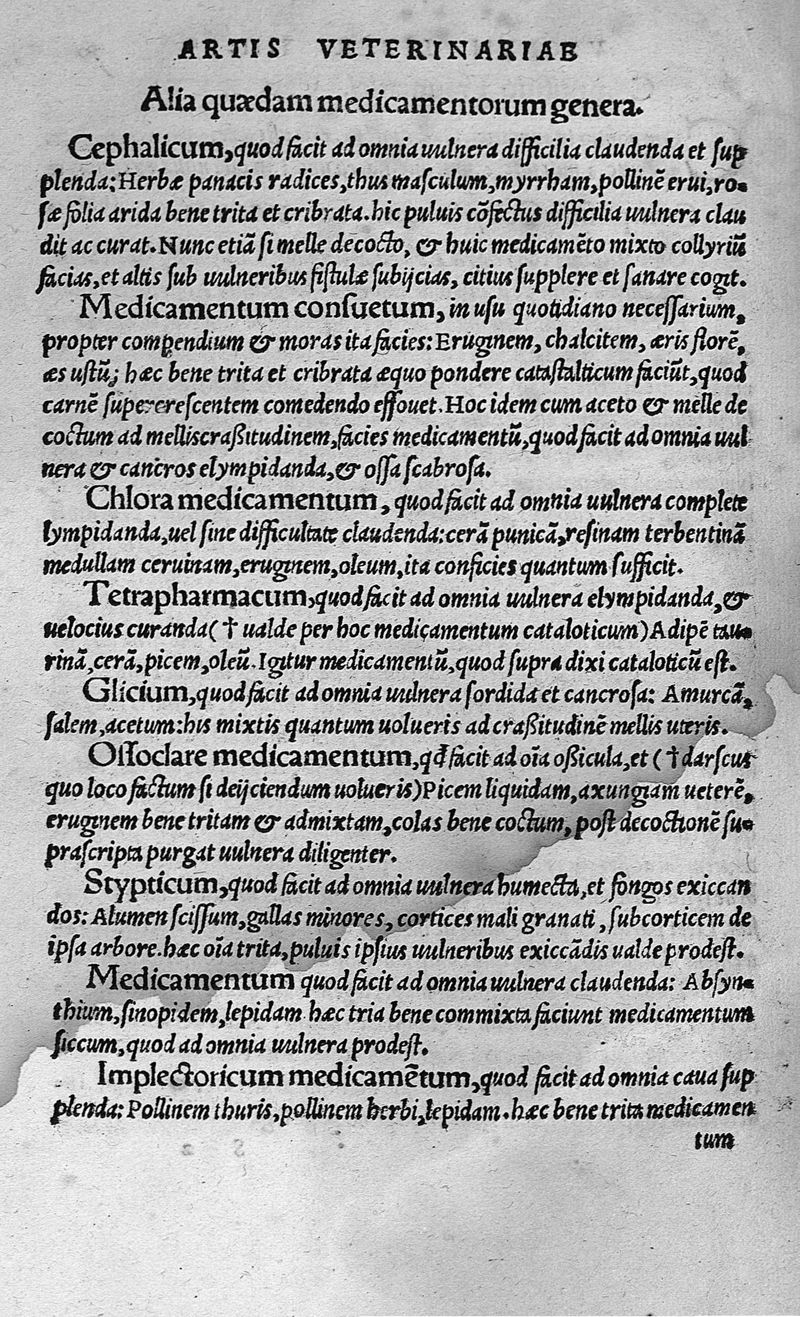 ARTIS VETERINARIAE
Alia quædam medicamentorum genera.
Cephalicum, quod facit ad omnia uulnera difficilia claudenda et sup
plenda: Herbæ panacis radices, thus masculum, myrrham, pollinē erui, ro-
sæ folia arida bene trita et cribrata. hic puluis cōfectus difficilia uulnera clau
dit ac curat. Nunc etiā si melle decocto, & huic medicamēto mixto collyriū
facias, et altis sub uulneribus fistulæ subijcias, citius supplere et sanare cogit.
Medicamentum consuetum, in usu quotidiano necessarium,
propter compendium & moras ita facies: Eruginem, chalcitem, æris florē,
æs ustū; hæc bene trita et cribrata æquo pondere catastalticum faciūt, quod
carnē supercrescentem comedendo effouet. Hoc idem cum aceto & melle de
coctum ad melliscraßitudinem, facies medicamentū, quod facit ad omnia uul
nera & cancros elympidanda, & ossa scabrosa.
Chlora medicamentum, quod facit ad omnia uulnera complete
lympidanda, uel sine difficultate claudenda: cerā punicā, resinam terbentinā
medullam ceruinam, eruginem, oleum, ita conficies quantum sufficit.
Tetrapharmacum, quod facit ad omnia uulnera elympidanda, &
uelocius curanda († ualde per hoc medicamentum cataloticum) Adipē tau-
rinā, cerā, picem, oleū. Igitur medicamentū, quod supra dixi cataloticū est.
Glicium, quod facit ad omnia uulnera sordida et cancrosa: Amurcā,
salem, acetum: his mixtis quantum uolueris ad craßitudinē mellis uteris.
Ossoclare medicamentum, qđ facit ad oīa oßicula, et († darscus
quo loco factum si deijciendum uolueris) Picem liquidam, axungiam ueterē,
eruginem bene tritam & admixtam, colas bene coctum, post decoctionē su-
prascripta purgat uulnera diligenter.
Stypticum, quod facit ad omnia uulnera humecta, et fongos exiccan
dos: Alumen scissum, gallas minores, cortices mali granati, subcorticem de
ipsa arbore. hæc oīa trita, puluis ipsius uulneribus exiccādis ualde prodest.
Medicamentum quod facit ad omnia uulnera claudenda: Absyn-
thium, sinopidem, lepidam. hæc tria bene commixta faciunt medicamentum
siccum, quod ad omnia uulnera prodest.
Implectoricum medicamētum, quod facit ad omnia caua sup
plenda: Pollinem thuris, pollinem herbi, lepidam. hæc bene trita medicamen
tum